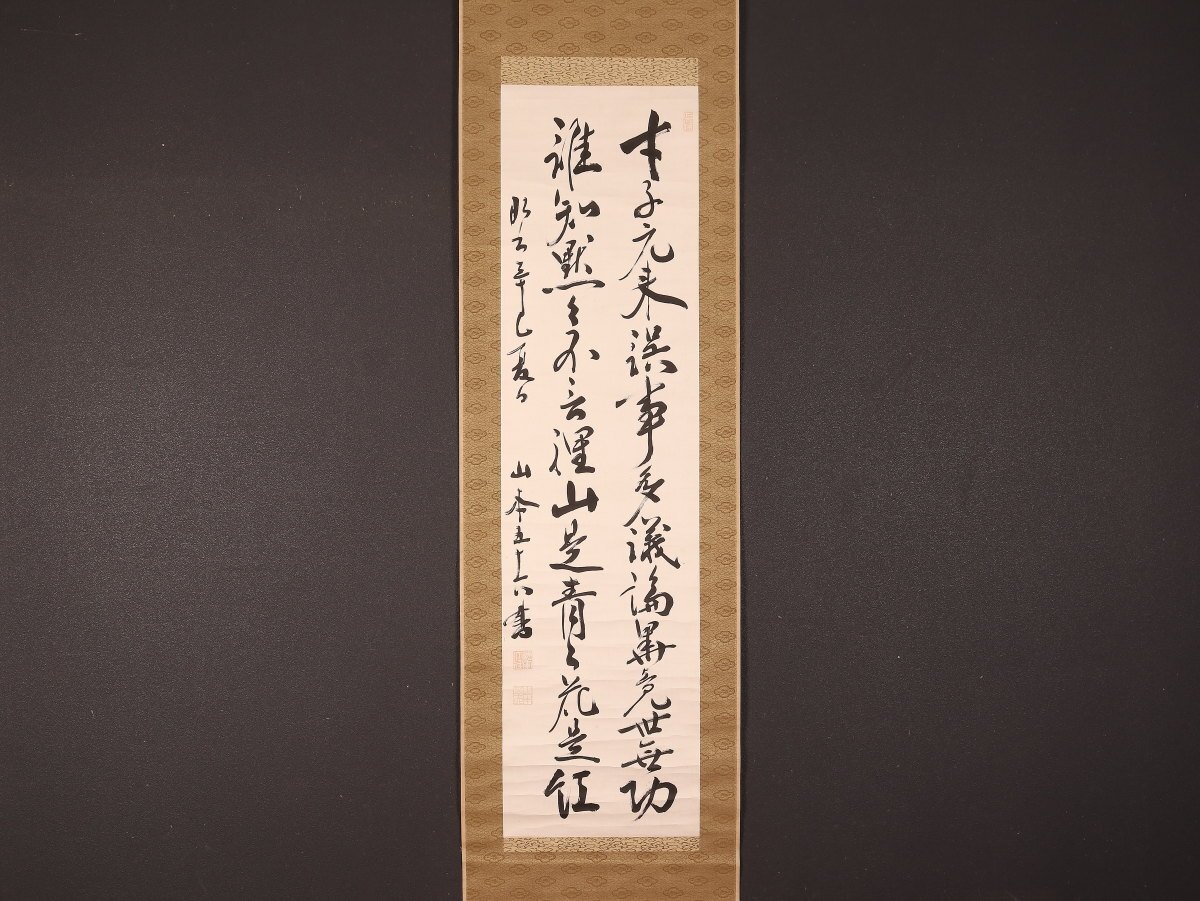 才子元来誤事多議論畢竟世無功
誰知黙々不言裡山是青々花是紅
昭和辛巳夏日 山本五十六書